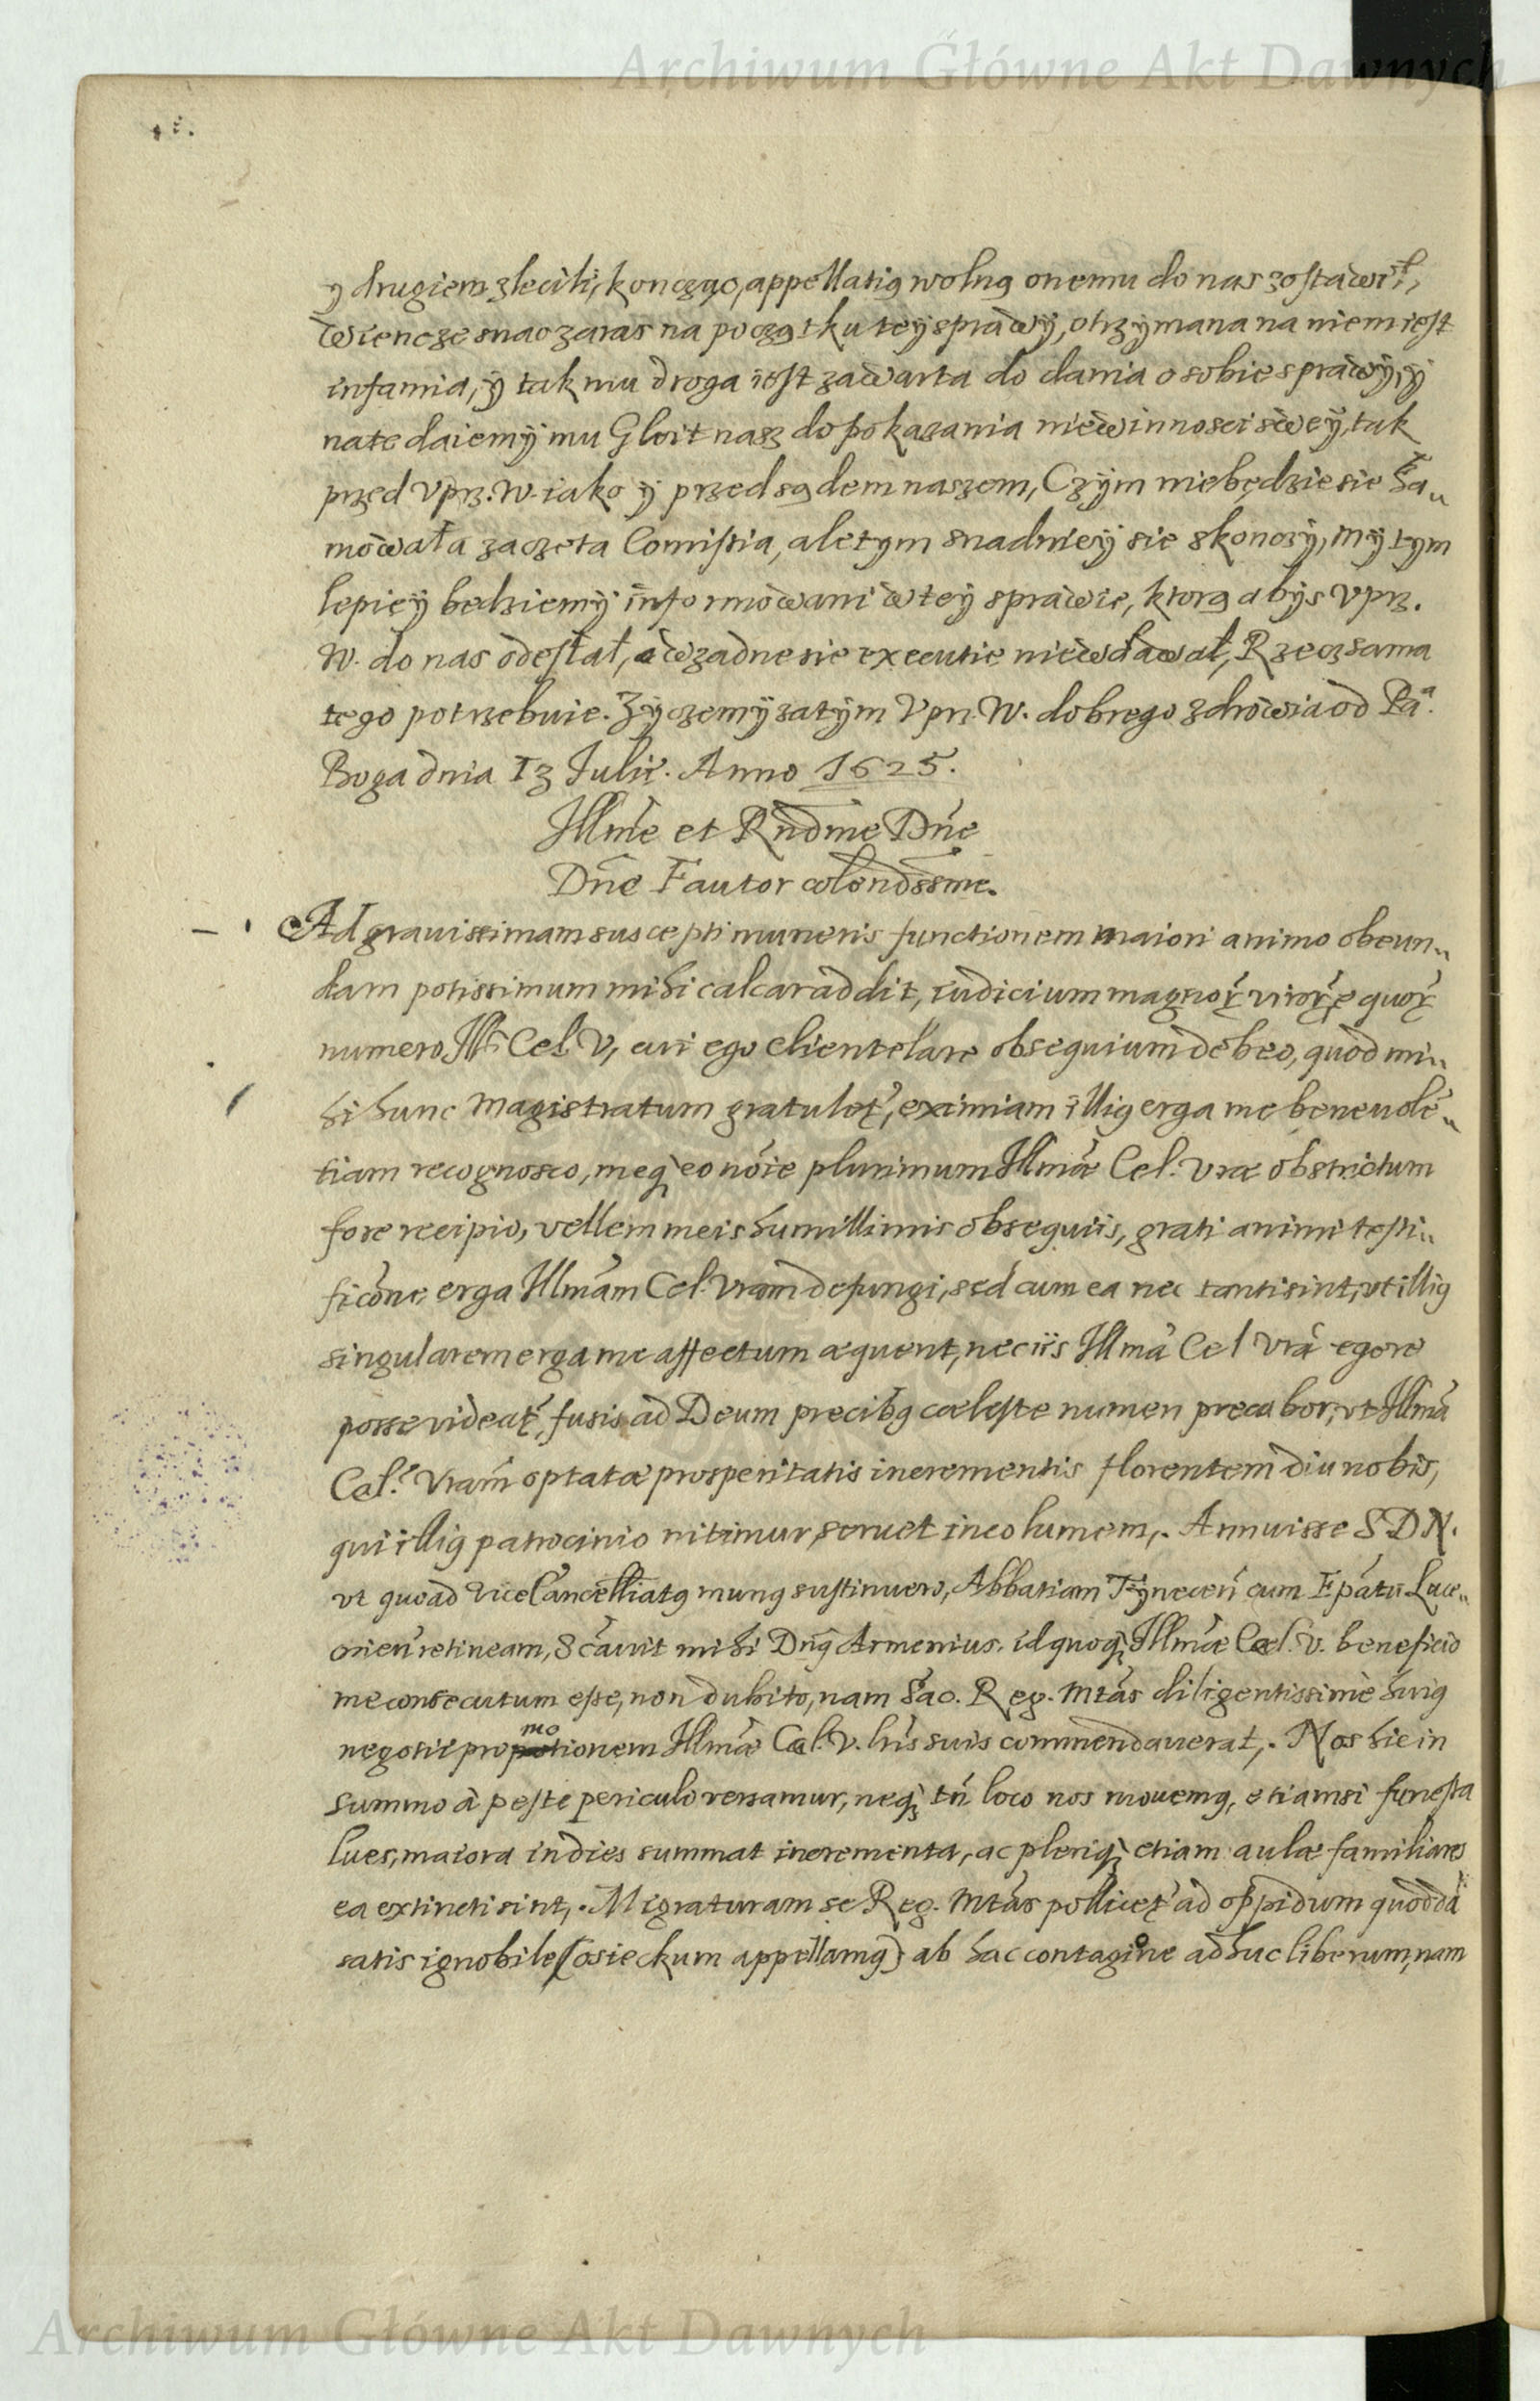 Archiwum Główne Akt Dawnych
y drugiem zlecili, koncząc, appellatią wolną onemu do nas zostawił,
wiencze snac zaras na początku tey sprawy, otrzymana na niem iest
infamia, y tak mu droga iest zawarta do dania o sobie sprawy, y
na te daiemy mu Gloit nasz do pokazania niewinnosci swey, tak
przed Vprz. W. iako y przed sądem naszem, Czym niebędzie sie ha„
mowała zaczeta Comissia, ale tym snadniey sie skonczy, my tym
lepiey bedziemy informowani w tey sprawie, ktorą abys Vprz.
W. do nas odesłał, a w zadne sie executie niewdawał, Rzecz sama
tego potrzebuie. Zyczemy zatym Vprz. W. dobrego zdrowia od Pa͠.
Boga dnia 13 Julii. Anno 1625.
Illme et Rndme Dne
Dne Fautor colendssme.
Ad grauissimam suscepti muneris functionem maiori animo obeun„
dam potissimum mihi calcar addit, iudicium magnoꝝ viroꝝ e quoꝝ
numero Illi Cel. V, cui ego clientelare obsequium debeo, quod mi„
hi hunc magistratum gratulet, eximiam illiꝰ erga me beneuole„
tiam recognosco, meqꝫ eo noie plurimum Illmæ Cel. Vræ obstrictum
fore recipio, vellem meis humillimis obsequiis, grati animi testi„
ficone, erga Illmam Cel. Vram defungi, sed cum ea nec tanti sint, vt illiꝰ
singularem erga me affectum æquent, nec iis Illma Cel Vra egere
posse videat, fusis ad Deum precibꝰ cœleste numen precabor, vt Illma
Cel. Vram optatæ prosperitatis incrementis florentem diu nobis,
qui illiꝰ patrocinio nitimur, seruet incolumem,. Annuisse S D N.
vt quoad ViceCancelliatꝰ munꝰ sustinuero, Abbatiam Tynecen cum Epatu Luce„
orien retineam, Scauit mihi Dnꝰ Armenius. id quoqꝫ Illmæ Cel. V. beneficio
me consecutum esse, non dubito, nam Sac. Reg. Mtas diligentissime huiꝰ
negotii promotionem Illmæ Cel. V. lris suis commendauerat,. Nos hic in
summo a peste periculo versamur, neqꝫ tn loco nos mouemꝰ, etiamsi funesta
lues, maiora indies summat incrementa, ac pleriqꝫ etiam aulæ familiares
ea extincti sint,. Migraturam se Reg. Mtas pollicet ad oppidum quodda
satis ignobile (osieckum appellamꝰ) ab hac contagione adhuc liberum, nam
Archiwum Główne Akt Dawnych